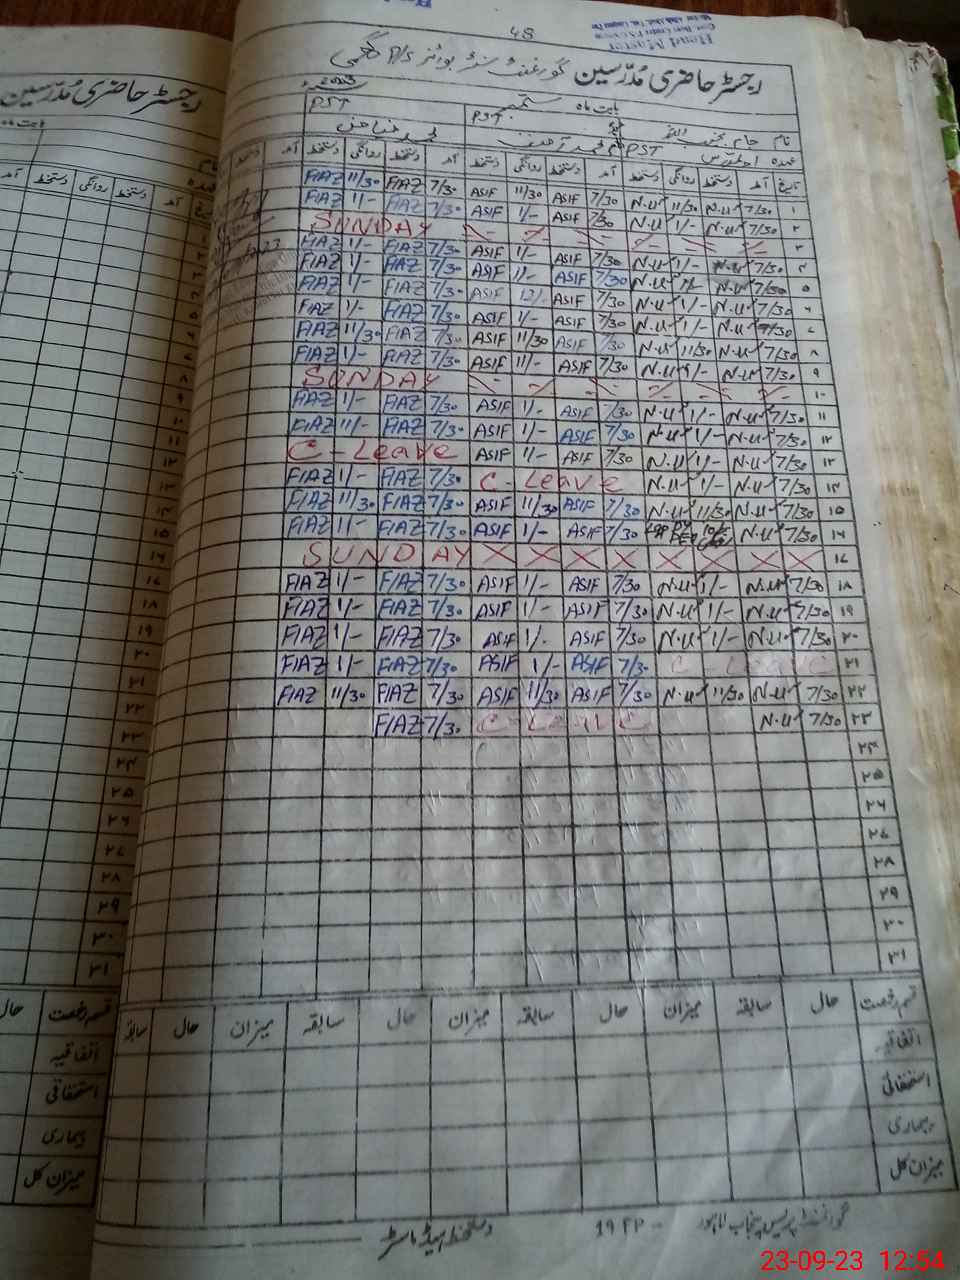 48
Head Master
رجسٹر حاضری مُدرّسین گورنمنٹ بوائز P/S
بابت ماہ ستمبر 2023
نام
عہدہ PST PST PST
تاریخ آمد دستخط روانگی دستخط آمد دستخط روانگی دستخط آمد دستخط روانگی دستخط آمد دستخط
۱ 7/30 N.U 11/30 N.U 7/30 ASIF 11/30 ASIF 7/30 FIAZ 11/30 FIAZ
۲ 7/30 N.U 1/- N.U 7/30 ASIF 1/- ASIF 7/30 FIAZ 1/- FIAZ
۳ SUNDAY
۴ 7/30 N.U 1/- N.U 7/30 ASIF 1/- ASIF 7/30 FIAZ 1/- FIAZ
۵ 7/30 N.U N.U 7/30 ASIF 1/- ASIF 7/30 FIAZ 1/- FIAZ
۶ 7/30 N.U 1/- N.U 7/30 ASIF 12/- ASIF 7/30 FIAZ 1/- FIAZ
۷ 7/30 N.U 1/- N.U 7/30 ASIF 1/- ASIF 7/30 FIAZ 1/- FIAZ
۸ 7/30 N.U 11/30 N.U 7/30 ASIF 11/30 ASIF 7/30 FIAZ 11/30 FIAZ
۹ 7/30 N.U 1/- N.U 7/30 ASIF 1/- ASIF 7/30 FIAZ 1/- FIAZ
۱۰ SUNDAY
۱۱ 7/30 N.U 1/- N.U 7/30 ASIF 1/- ASIF 7/30 FIAZ 1/- FIAZ
۱۲ 7/30 N.U 1/- N.U 7/30 ASIF 1/- ASIF 7/30 FIAZ 1/- FIAZ
۱۳ 7/30 N.U 1/- N.U 7/30 ASIF 1/- ASIF C-Leave
۱۴ 7/30 N.U 1/- N.U C-Leave 7/30 FIAZ 1/- FIAZ
۱۵ 7/30 N.U 11/30 N.U 7/30 ASIF 11/30 ASIF 7/30 FIAZ 11/30 FIAZ
۱۶ 7/30 N.U 7/30 ASIF 1/- ASIF 7/30 FIAZ 1/- FIAZ
۱۷ SUNDAY X X X X X X X X
۱۸ 7/30 N.U 1/- N.U 7/30 ASIF 1/- ASIF 7/30 FIAZ 1/- FIAZ
۱۹ 7/30 N.U 1/- N.U 7/30 ASIF 1/- ASIF 7/30 FIAZ 1/- FIAZ
۲۰ 7/30 N.U 1/- N.U 7/30 ASIF 1/- ASIF 7/30 FIAZ 1/- FIAZ
۲۱ C-LEAVE 7/30 ASIF 1/- ASIF 7/30 FIAZ 1/- FIAZ
۲۲ 7/30 N.U 11/30 N.U 7/30 ASIF 11/30 ASIF 7/30 FIAZ 11/30 FIAZ
۲۳ 7/30 N.U C-LEAVE 7/30 FIAZ
۲۴
۲۵
۲۶
۲۷
۲۸
۲۹
۳۰
۳۱
قسم رخصت حال سابقہ میزان حال سابقہ میزان حال سابقہ میزان حال سابقہ
اتفاقیہ
استحقاقی
بیماری
میزان کل
گورنمنٹ پریس پنجاب لاہور
دستخط ہیڈ ماسٹر
رجسٹر حاضری مُدرّسین
بابت ماہ
نام
عہدہ
آمد دستخط روانگی دستخط آمد
۱۸
۱۹
۲۰
۲۱
۲۲
۲۳
۲۴
۲۵
۲۶
۲۷
۲۸
۲۹
۳۰
۳۱
قسم رخصت حال
اتفاقیہ
استحقاقی
بیماری
میزان کل
23-09-23 12:54